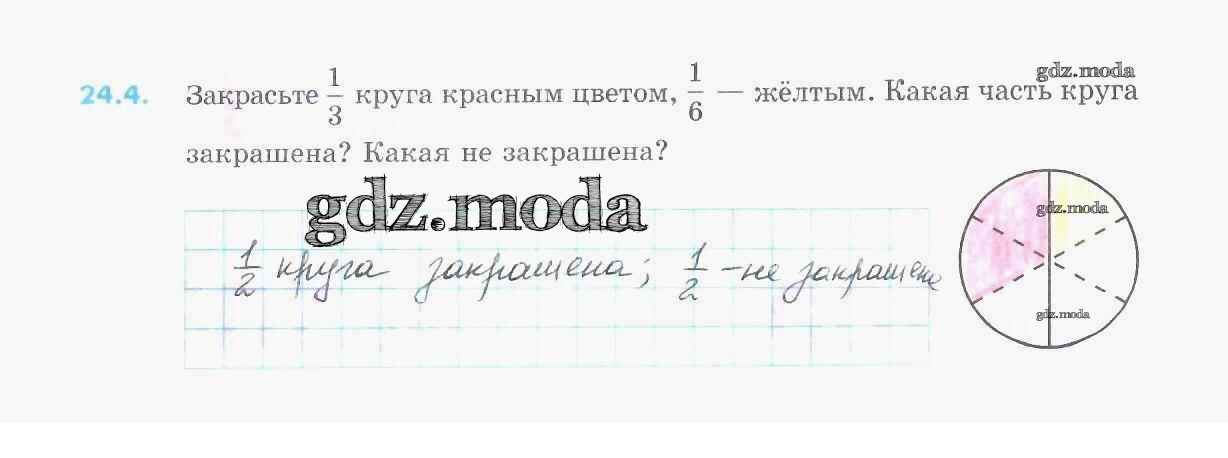 gdz.moda
24.4. Закрасьте 1/3 круга красным цветом, 1/6 — жёлтым. Какая часть круга
закрашена? Какая не закрашена?
gdz.moda
gdz.moda
1/2 круга закрашена; 1/2 -не закрашена
gdz.moda